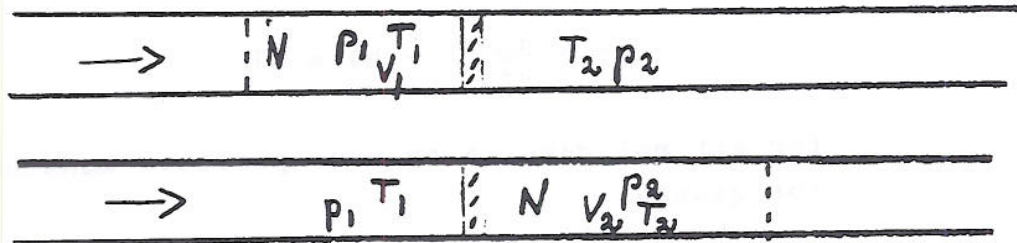 → N p₁ T₁ V₁ T₂ p₂
→ p₁ T₁ N V₂ p₂ T₂